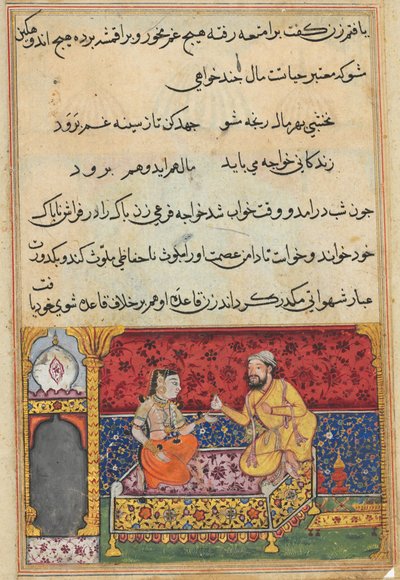 یافتم زن کفت برامتعه رفته هیچ غم مخور و براقمشه برده هیچ اندوهکین
شو که معتبر حیاتست مال چند خواهی
نخشبی بهر مال رنجه مشو جهد کن تا ز سینه غم برود
زندکانی خواجه می باید مال هم اید و هم برود
چون شب درامد و وقت خواب شد خواجه فرعی زن پاک را در فراش ناپاک
خود خواند و خواست تا دامن عصمت او را بلوث ناحفاظی ملوث کند و بکدورت
غبار شهوانی مکدر کرداند زن قاعدهٔ او هم بر خلاف قاعدهٔ شوی خود یافت